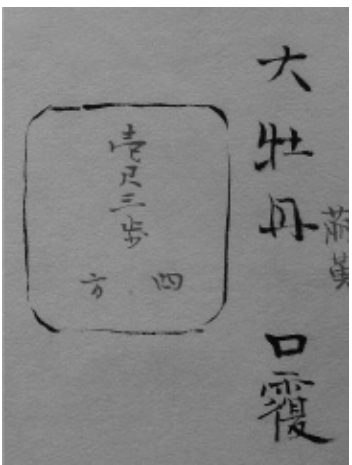 大牡丹 口覆
壱尺三歩
四方